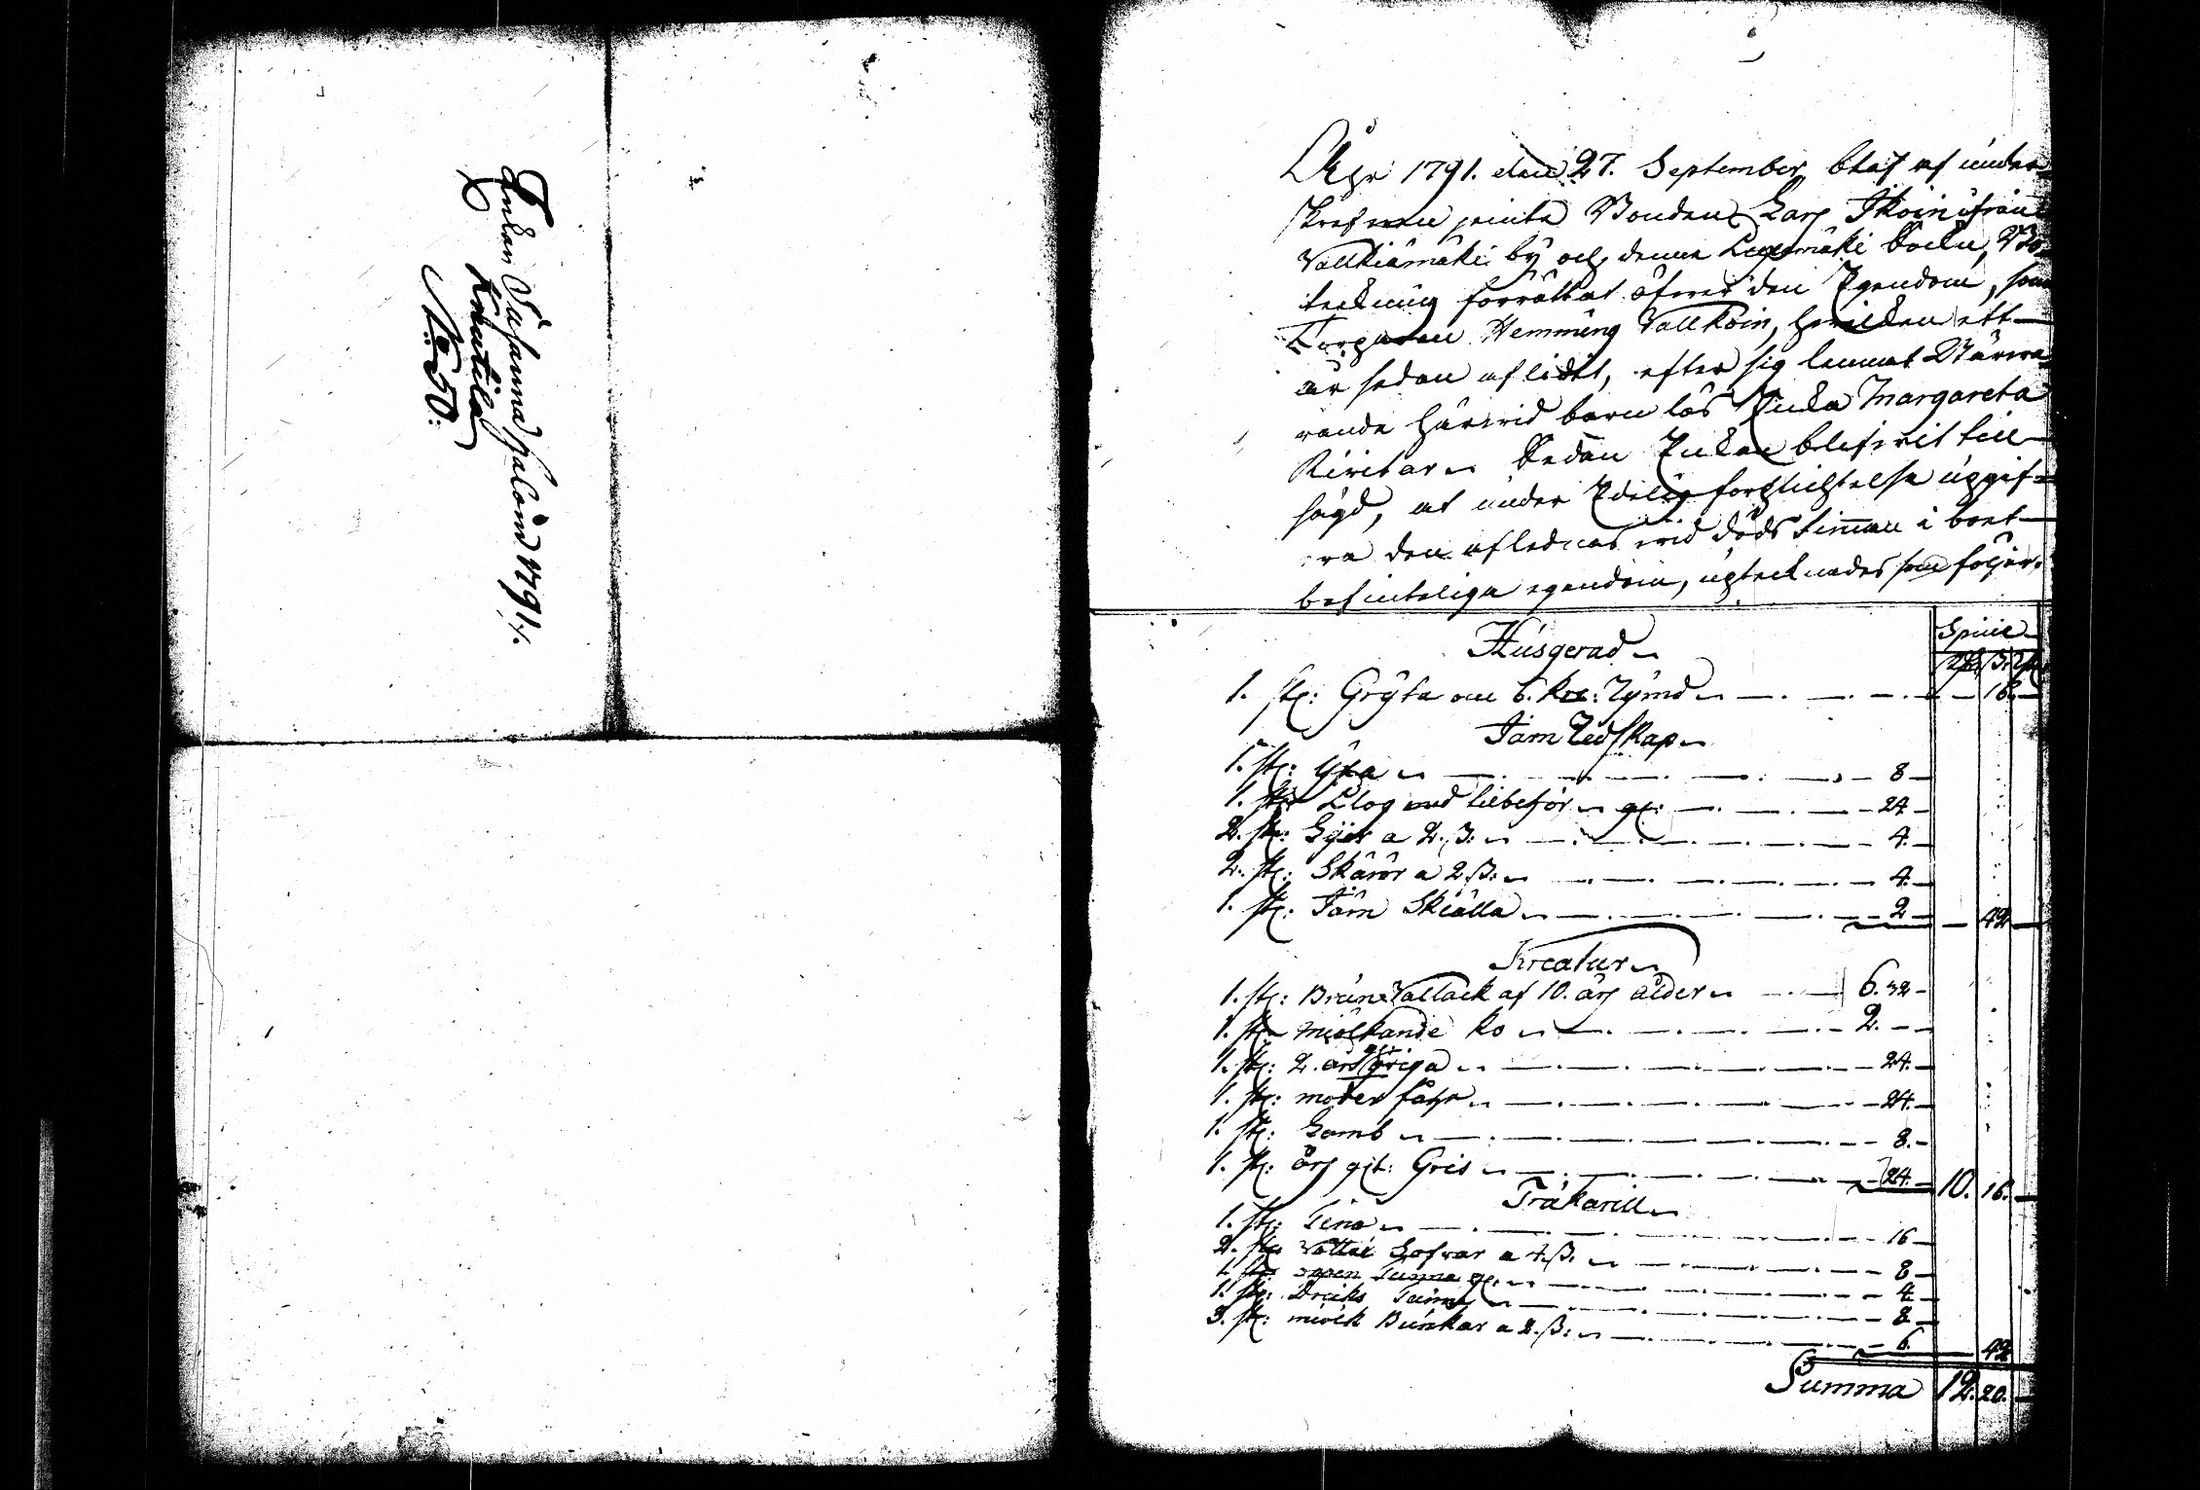 Enkan Susanna Haloind 1791.
Koutila
No 50.
Åhr 1791. den 27. September, blef af under-
skrefven jemte Bonden Lars Ikoin ifrån
Vallkiämäki by och denne Leppmäki Sockn, Bo-
tekning förrättat öfver den Egendom, som
Torparen Hemming Vallkoin, hvilken ett
år sedan aflidit, efter sig lemnat Närva-
rande härvid barnlös Enka Margareta
Kivitar. Sedan Enkan blifvit till-
sagd, at under Edelig förplichtelse uppgif-
va den aflednas vid döds timman i boet
befinteliga egendom, uptecknades som följer.
Spcie
Rd. ß. rst.
Husgerad
1. st: Gryta om 6. kr: Rymd — 16. —
Jarn Redskap
1. st: Yxa — 8 —
1. st: Plog med tilbehör — 24 —
2. st: Lijer a 2. ß: — 4. —
2. st: Skäror a 2 ß: — 4. —
1. st: Järn Skiälla — 2 — 42 —
Kreatur
1. st: Brun Vallack af 10. års ålder — 6. 32 —
1. st: miölkande ko — 2. — —
1. st: 2. års qviga — 24. —
1. st: moder fåhr — 24. —
1. st: Lamb — 8. —
1. st: års glt: Gris — 24. — 10. 16. —
Träkärill
1. st: Tina — 16 —
2. st: Vatten Sofvar a 4. ß: — 8 —
1. st: Tunna — 4 —
1. st: Dricks Tunna — 8 —
3. st: miölk Bunkar a 2. ß: — 6. 42
Summa 12. 20. —